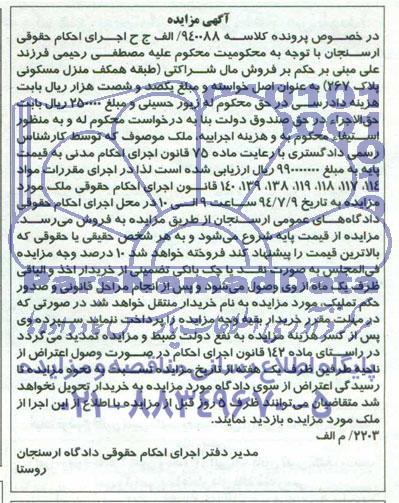 آگهی مزایده
در خصوص پرونده کلاسه ۹۴۰۰۸۸/ الف ج ح اجرای احکام حقوقی
ارسنجان با توجه به محکومیت محکوم علیه مصطفی رحیمی فرزند
علی مبنی بر حکم بر فروش مال شراکتی (طبقه همکف منزل مسکونی
پلاک ۲۶۷) به عنوان اصل خواسته و مبلغ یکصد و شصت هزار ریال بابت
هزینه دادرسی در حق محکوم له زیور حسینی و مبلغ ریال بابت
حق الاجراء در حق صندوق دولت بنا به درخواست محکوم له و به منظور
استیفای محکوم به و هزینه اجراییه، ملک موصوف که توسط کارشناس
رسمی دادگستری با رعایت ماده ۷۵ قانون اجرای احکام مدنی به قیمت
پایه به مبلغ ریال ارزیابی شده است لذا در اجرای مقررات مواد
۱۱۴، ۱۱۷، ۱۱۸، ۱۱۹، ۱۳۸، ۱۳۹، ۱۴۰ قانون اجرای احکام حقوقی ملک مورد
مزایده به تاریخ ۹۴/۷/۹ ساعت ۹ الی ۱۰ در محل اجرای احکام حقوقی
دادگاه‌های عمومی ارسنجان از طریق مزایده به فروش می‌رسد.
مزایده از قیمت پایه شروع می‌شود و به هر شخص حقیقی یا حقوقی که
بالاترین قیمت را پیشنهاد کند فروخته خواهد شد ۱۰ درصد وجه مزایده
فی‌المجلس به صورت نقد یا چک بانکی تضمینی از خریدار اخذ و الباقی
ظرف یک ماه از وی وصول می‌شود و پس از انجام مراحل قانونی و صدور
حکم تملیک، مورد مزایده به نام خریدار منتقل خواهد شد در صورتی که
در مهلت مقرر خریدار بقیه وجه مزایده را پرداخت ننماید سپرده وی
پس از کسر هزینه مزایده به نفع دولت ضبط و مزایده تمدید می‌گردد
در راستای ماده ۱۴۲ قانون اجرای احکام در صورت وصول اعتراض از
ناحیه طرفین ظرف یک هفته از تاریخ مزایده نسبت به نحوه مزایده تا
رسیدگی اعتراض از سوی دادگاه مورد مزایده به خریدار تحویل نخواهد
شد متقاضیان می‌توانند ظرف ۵ روز قبل از مزایده با اطلاع از این اجرا از
ملک مورد مزایده بازدید نمایند.
۲۲۰۳/ م الف
مدیر دفتر اجرای احکام حقوقی دادگاه ارسنجان
روستا
پایگاه اطلاع رسانی مناقصه و مزایده
۰۲۱-۸۸۳۴۹۶۷۰-۵